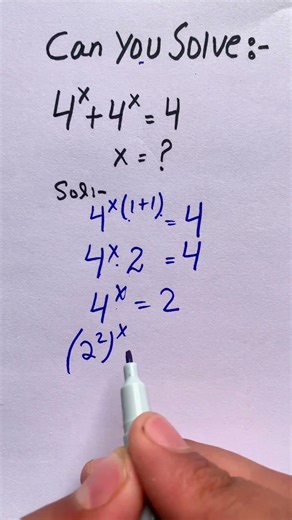 Can You Solve:-
4ˣ + 4ˣ = 4
x = ?
Sol:-
4ˣ(1+1) = 4
4ˣ. 2 = 4
4ˣ = 2
(2²)ˣ